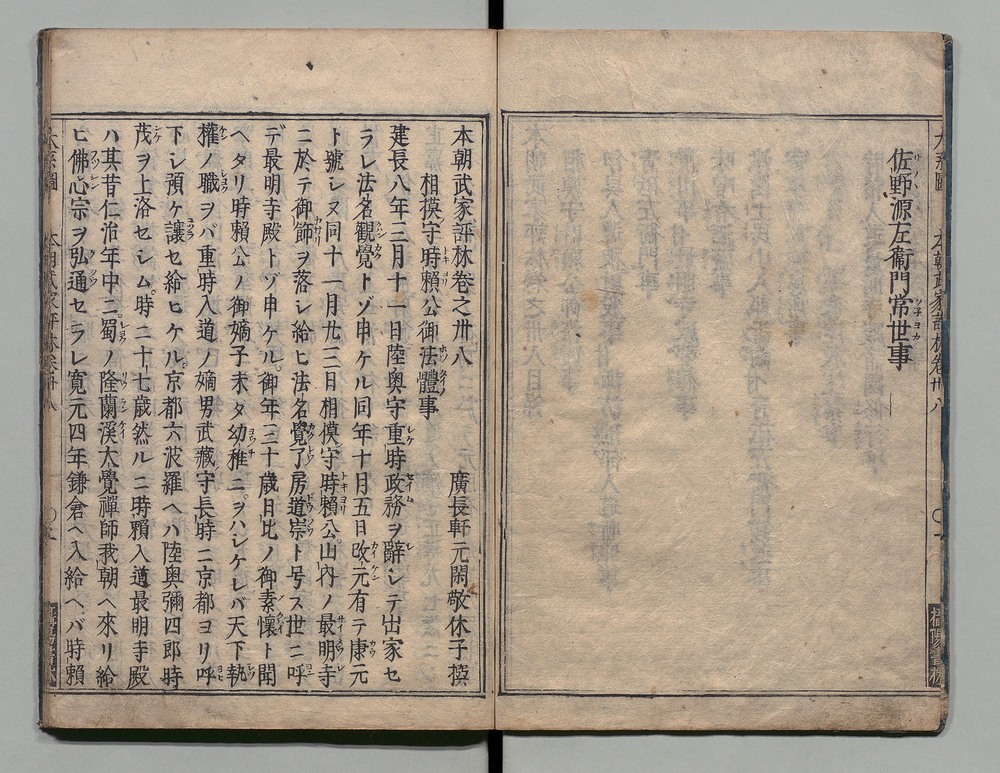 佐野源左衞門常世事
本朝武家評林卷之卅八
相摸守時賴公御法體事
廣長軒元閑敬休子撰
建長八年三月十一日陸奧守重時政務ヲ辭シテ出家セ
ラレ法名觀覺トゾ申ケル同年十月五日改元有テ康元
ト號シヌ同十一月廿三日相模守時賴公山內ノ最明寺
ニ於テ御飾ヲ落シ給ヒ法名覺了房道崇ト号ス世ニ呼
デ最明寺殿トゾ申ケル御年三十歲日比ノ御素懷ト聞
ヘタリ時賴公ノ御嫡子未タ幼稚ニヲハシケレバ天下執
權ノ職ヲバ重時入道ノ嫡男武藏守長時ニ京都ヨリ呼
下シ預ケ讓セ給ヒケル京都六波羅ヘハ陸奧彌四郎時
茂ヲ上洛セシム時ニ十七歲然ルニ時賴入道最明寺殿
ハ其昔仁治年中ニ蜀ノ隆蘭溪大覺禪師我朝ヘ來リ給
ヒ佛心宗ヲ弘通セラレ寬元四年鎌倉ヘ入給ヘバ時賴